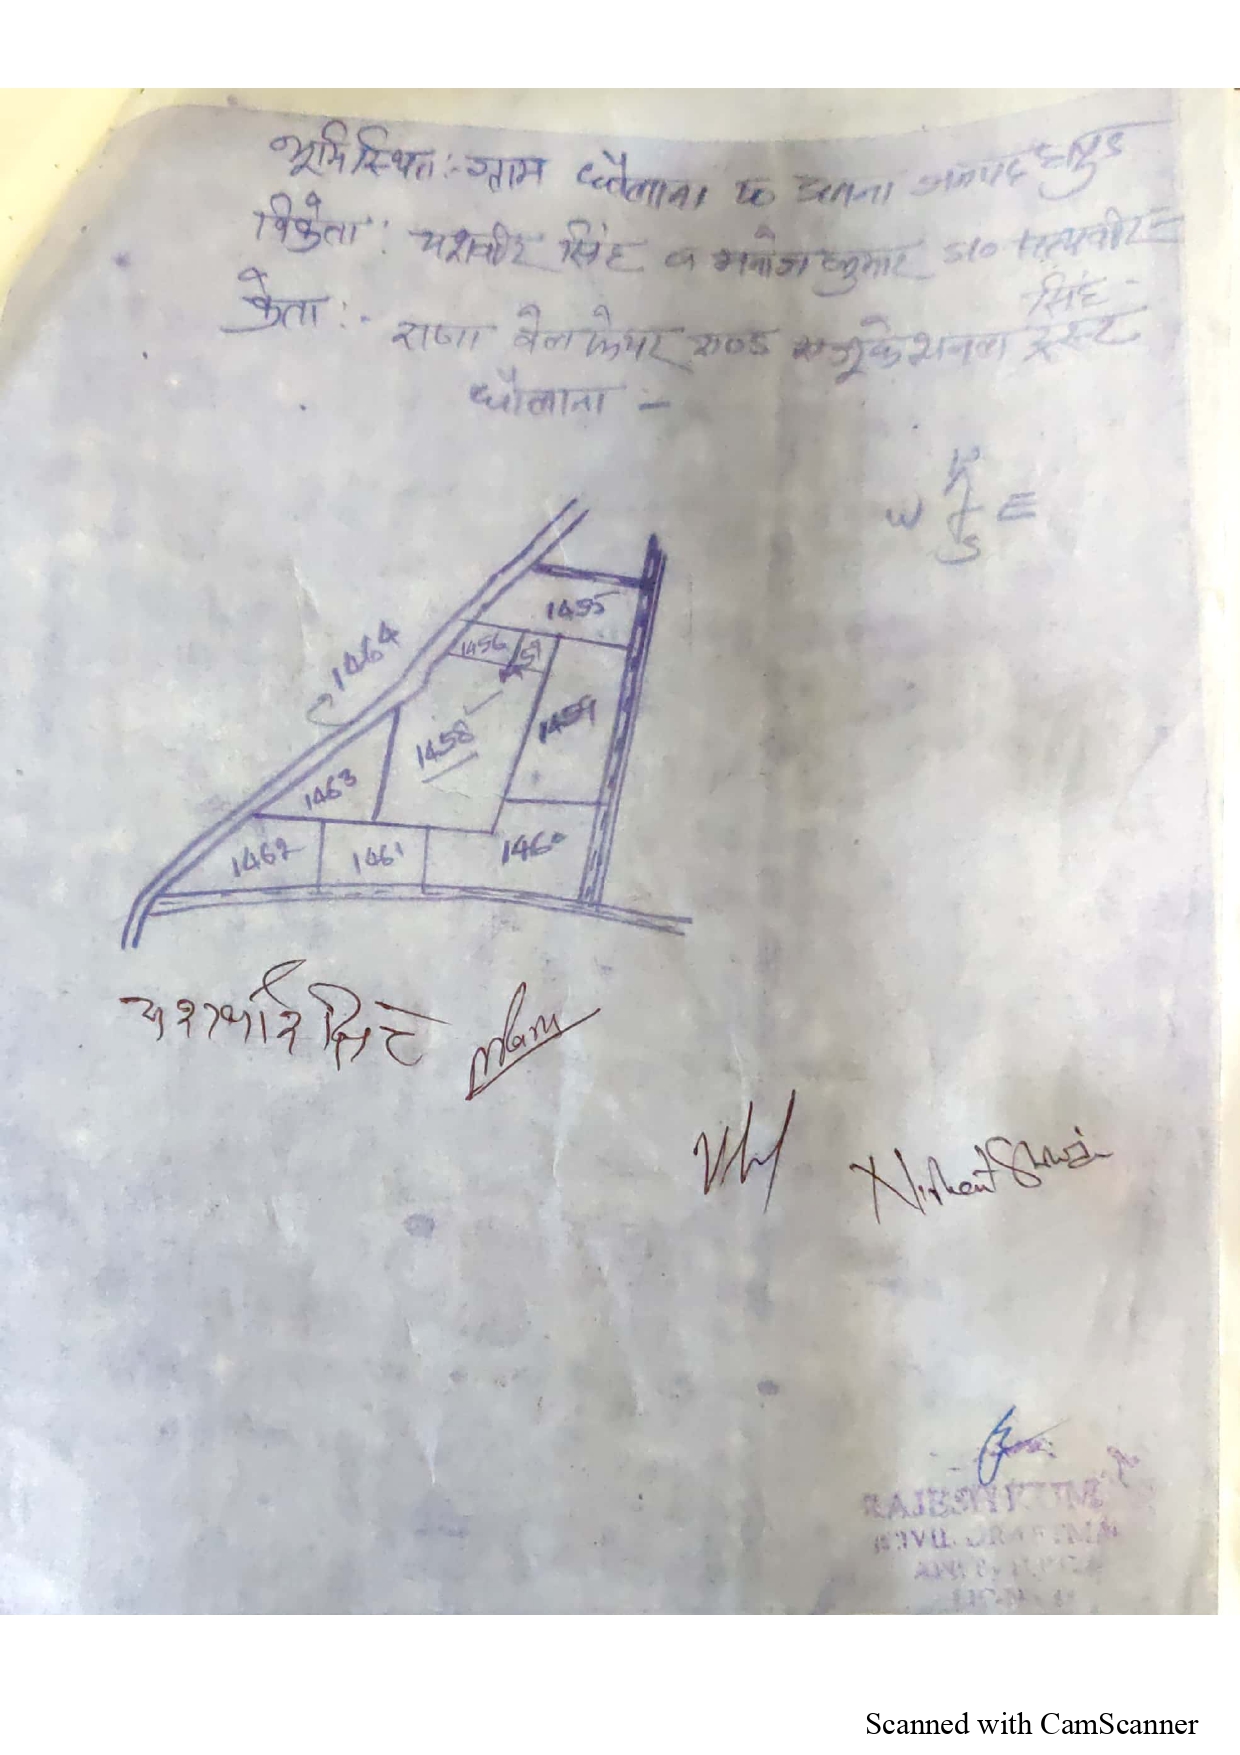 भूमि स्थित:- ग्राम धौलाना जनपद हापुड
विक्रेता: यशवीर सिंह व मनोज कुमार S/o सत्यवीर
सिंह -
क्रेता:- राणा वेलफेयर एण्ड एजूकेशनल ट्रस्ट
धौलाना -
N
W E
S
1455
1464
1456
57
1459
1458
1463
1462
1461
1460
यशवीर सिंह
Nishant
RAJESH KUM
CIVIL DRAFTMA
Scanned with CamScanner